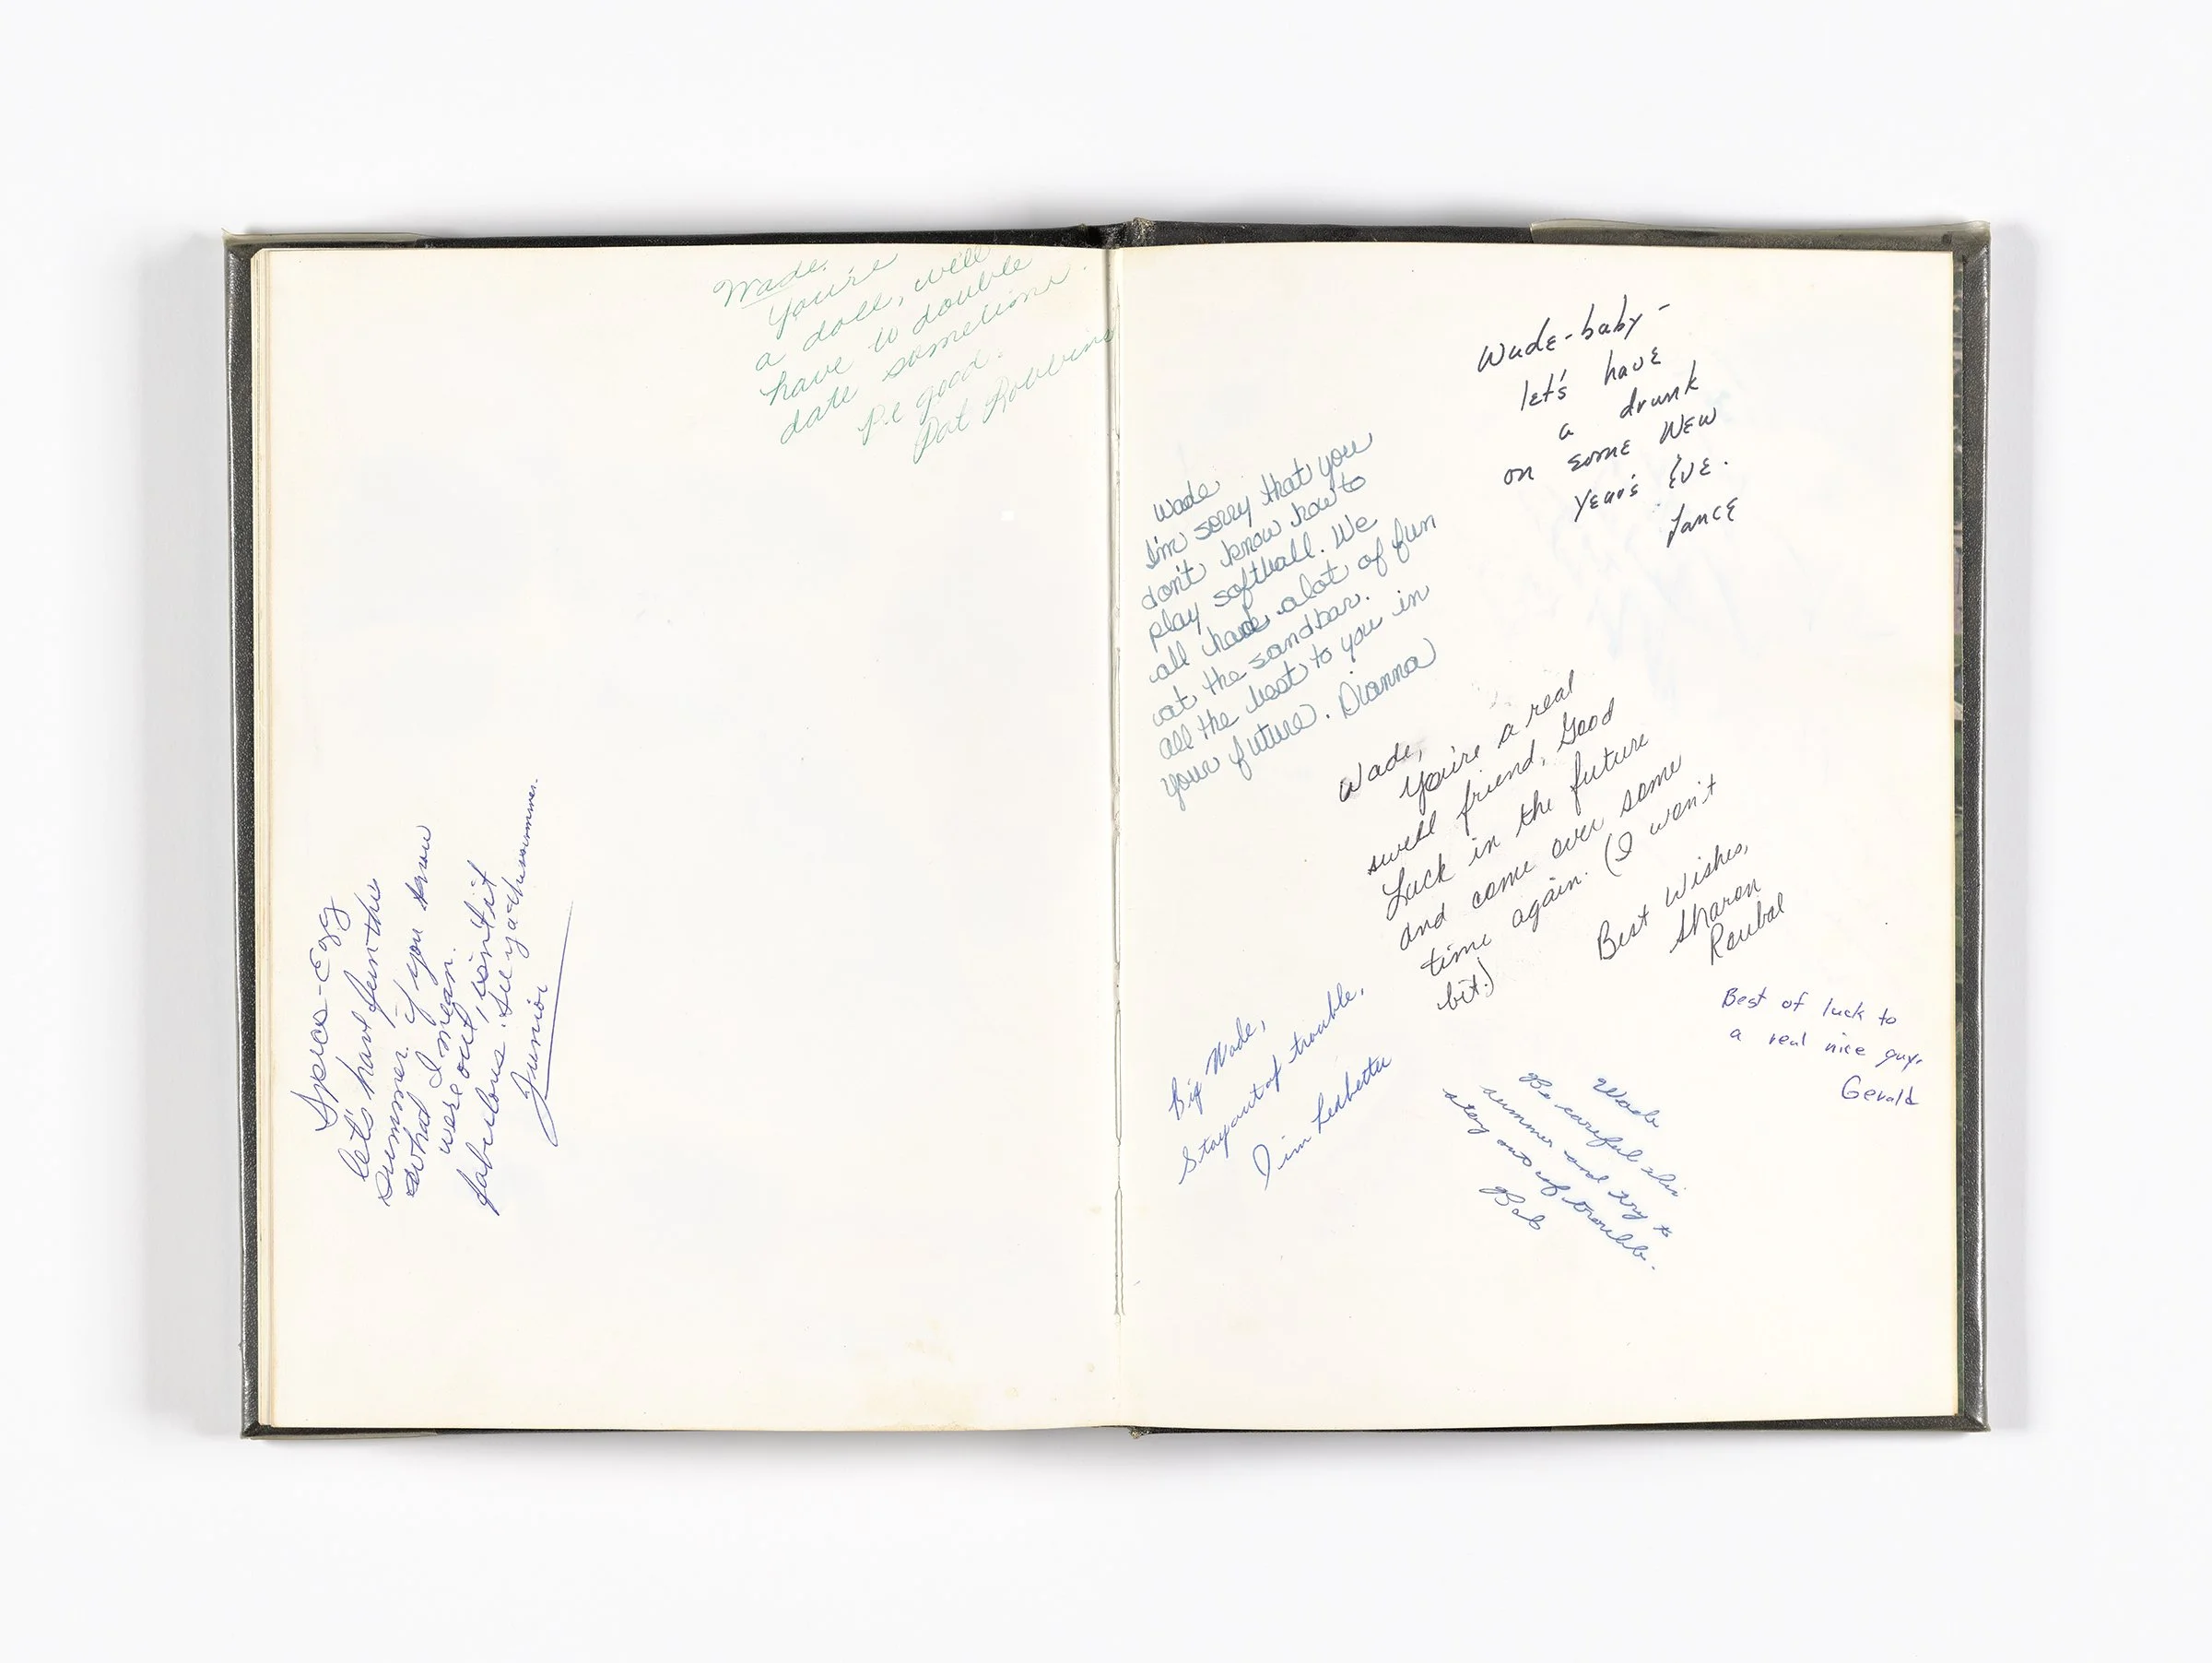 Wade,
You're
a doll, we'll
have to double
date sometime.
Be good.
Pat Robbins
Spica-Egg
let's have fun this
summer, if you know
what I mean.
were out, isn't it
fabulous. See ya this summer.
Junior
Wade-baby-
let's have
a drunk
on some New
Year's Eve.
Lance
Wade
I'm sorry that you
don't know how to
play softball. We
all had alot of fun
at the sandbar.
all the best to you in
your future. Dianna
Wade,
You're a real
swell friend. Good
Luck in the future
and come over some
time again. (I won't
bit.)
Best Wishes,
Sharon
Reubal
Best of luck to
a real nice guy.
Gerald
Big Wade,
Stay out of trouble,
Jim Ledbetter
Wade
Be careful this
summer and try to
stay out of trouble.
Bob